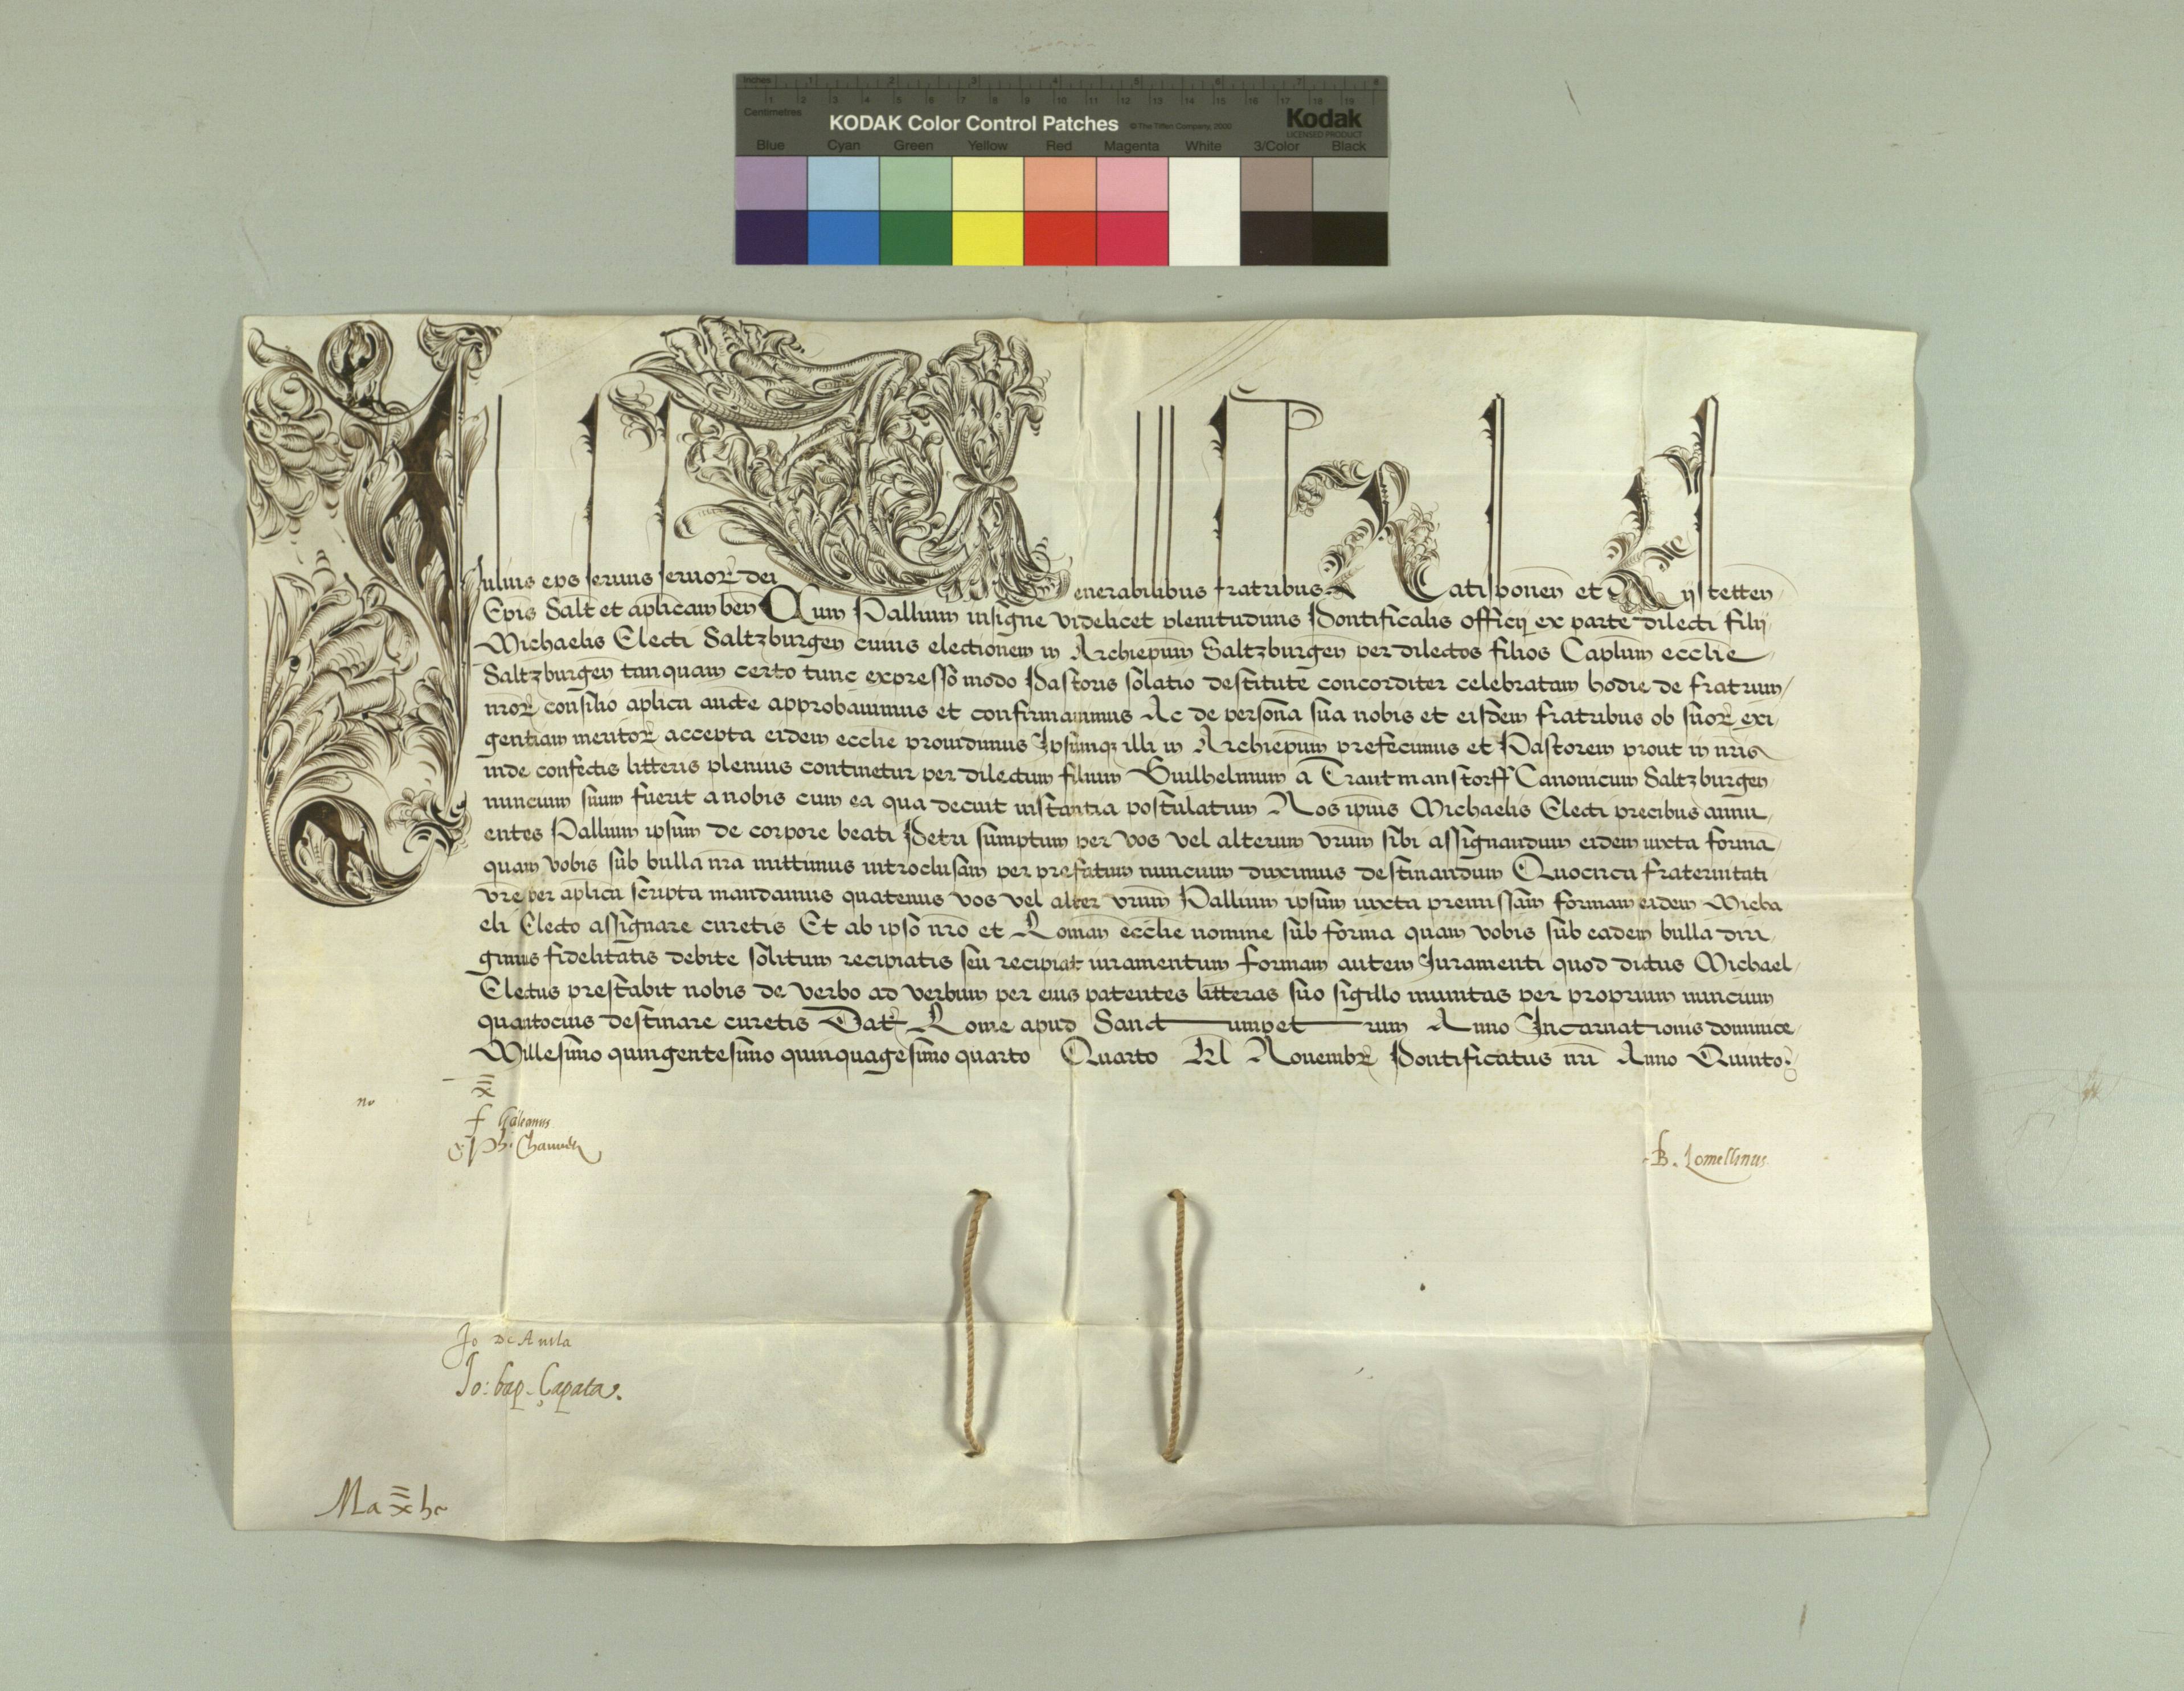 Inches 1 2 3 4 5 6 7 8
1 2 3 4 5 6 7 8 9 10 11 12 13 14 15 16 17 18 19
Centimetres
KODAK Color Control Patches © The Tiffen Company, 2000 Kodak
LICENSED PRODUCT
Blue Cyan Green Yellow Red Magenta White 3/Color Black
Iulius eps seruus seruor dei Venerabilibus fratribus Ratisponen et Eystetten
Epis Salt et aplicam ben Cum Pallium insigne videlicet plenitudinis Pontificalis officij ex parte dilecti filij
Michaelis Electi Saltzburgen cuius electionem in Archiepum Saltzburgen per dilectos filios Caplum ecclie
Saltzburgen tanquam certo tunc expresso modo Pastoris solatio destitute concorditer celebratam hodie de fratrum
nror consilio aplica aucte approbauimus et confirmauimus Ac de persona sua nobis et eisdem fratribus ob suor exi
gentiam meritor accepta eidem ecclie prouidimus Ipsumqz illi in Archiepum prefecimus et Pastorem prout in nris
inde confectis litteris plenius continetur per dilectum filium Guilhelmum a Trautmanstorff Canonicum Saltzburgen
nuncium suum fuerit a nobis cum ea qua decuit instantia postulatum Nos ipius Michaelis Electi precibus annu
entes Pallium ipsum de corpore beati Petri sumptum per vos vel alterum vrum sibi assignandum eidem iuxta formā
quam vobis sub bulla nra mittimus introclusam per prefatum nuncium duximus destinandum Quocirca fraternitati
vre per aplica scripta mandamus quatenus vos vel alter vrum Pallium ipsum iuxta premissam formam eidem Micha
eli Electo assignare curetis Et ab ipso nro et Roman ecclie nomine sub forma quam vobis sub eadem bulla diri
gimus fidelitatis debite solitum recipiatis seu recipiat iuramentum Formam autem Iuramenti quod dictus Michael
Electus prestabit nobis de verbo ad verbum per eius patentes litteras suo sigillo munitas per proprium nuncium
quantocius destinare curetis Dat Rome apud Sanctumpetrum Anno Incarnationis dominice
Millesimo quingentesimo quinquagesimo quarto Quarto Kl Nouembr Pontificatus nri Anno Quinto
no
x
f Galeanus
Ph. Chamuel
B. Lomellinus
Jo De Auila
Jo: bap. Çapata.
Ma x